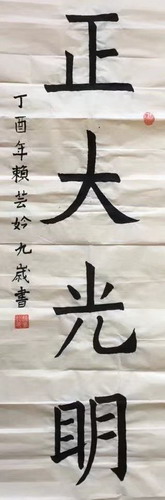 正大光明
丁酉年賴芸妗九歲書